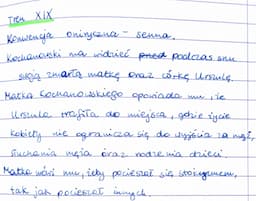 Tren XIX
Konwencja oniryczna - senna.
Kochanowski ma widzieć podczas snu
swoją zmarłą matkę oraz córkę Urszulę.
Matka Kochanowskiego opowiada mu, że
Urszula trafiła do miejsca, gdzie życie
kobiety nie ogranicza się do wyjścia za mąż,
słuchania męża oraz rodzenia dzieci.
Matka mówi mu, żeby pocieszał się stoicyzmem,
tak jak pocieszał innych.